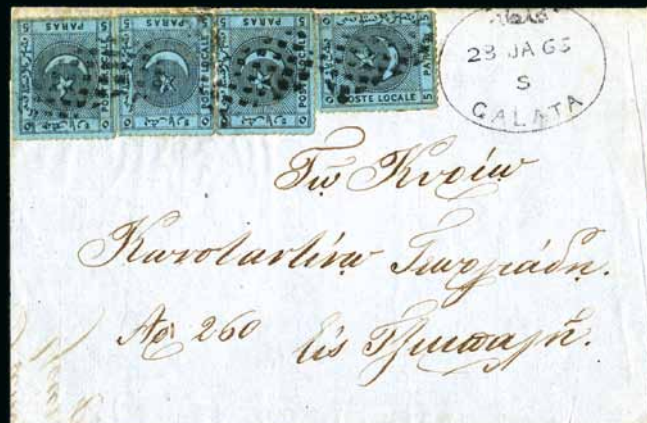 5 PARAS 5
POSTE LOCALE
5 PARAS 5
POSTE LOCALE
5 PARAS 5
POSTE LOCALE
POSTE LOCALE 5
PARAS
23 JA 65
S
GALATA
Τῷ Κυρίῳ
Κωνσταντίνῳ Γεωργιάδῃ.
Αρ 260 Εἰς Τζιμπαλῆ.